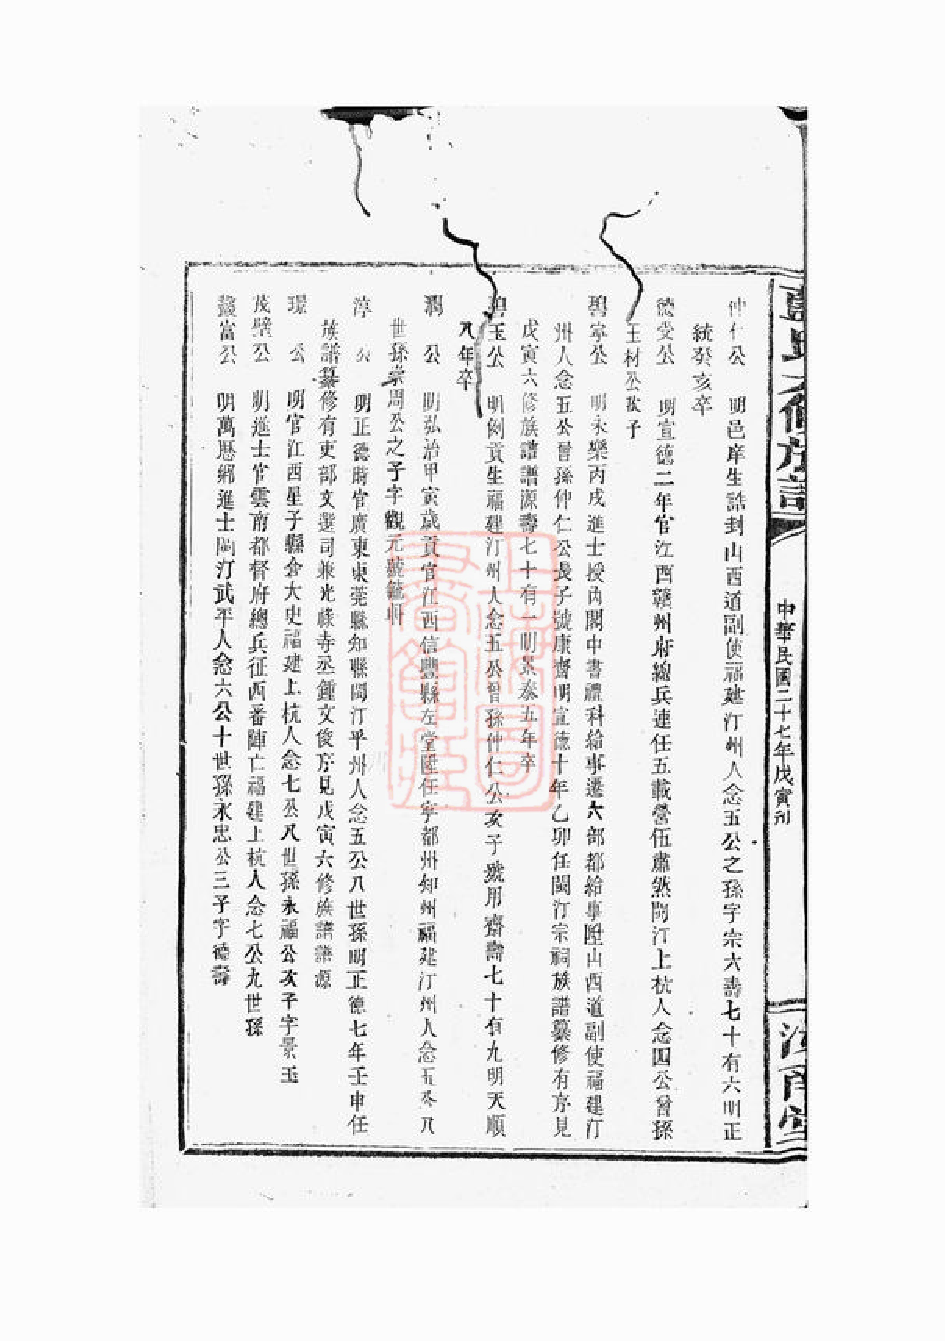 藍氏六修族譜
中華民國二十七年戊寅刊
汝南堂
仲仁公 明邑庠生誥封山西道副使福建汀州人念五公之孫字宗六壽七十有六明正
統癸亥卒
德受公 明宣德二年官江西贛州府總兵連任五載營伍肅然閩汀上杭人念四公曾孫
玉材公長子
碧寧公 明永樂丙戌進士授內閣中書禮科給事遷六部都給事陞山西道副使福建汀
州人念五公曾孫仲仁公長子號康齋明宣德十年乙卯任閩汀宗祠族譜纂修有序見
戊寅六修族譜譜源壽七十有一明景泰五年卒
碧玉公 明例貢生福建汀州人念五公曾孫仲仁公次子號用齋壽七十有九明天順
八年卒
潤公 明弘治甲寅歲貢官江西信豐縣左堂陞任寧都州知州福建汀州人念五公八
世孫崇周公之子字觀元號
淳公 明正德時官廣東東莞縣知縣閩汀平州人念五公八世孫明正德七年壬申任
族譜纂修有吏部文選司兼光祿寺丞鍾文俊序見戊寅六修族譜譜源
璟公 明官江西星子縣倉大史福建上杭人念七公八世孫永福公次子字景玉
茂壁公 明進士官雲南都督府總兵征西番陣亡福建上杭人念七公九世孫
公 明萬歷鄉進士閩汀武平人念六公十世孫永忠公三子字德壽